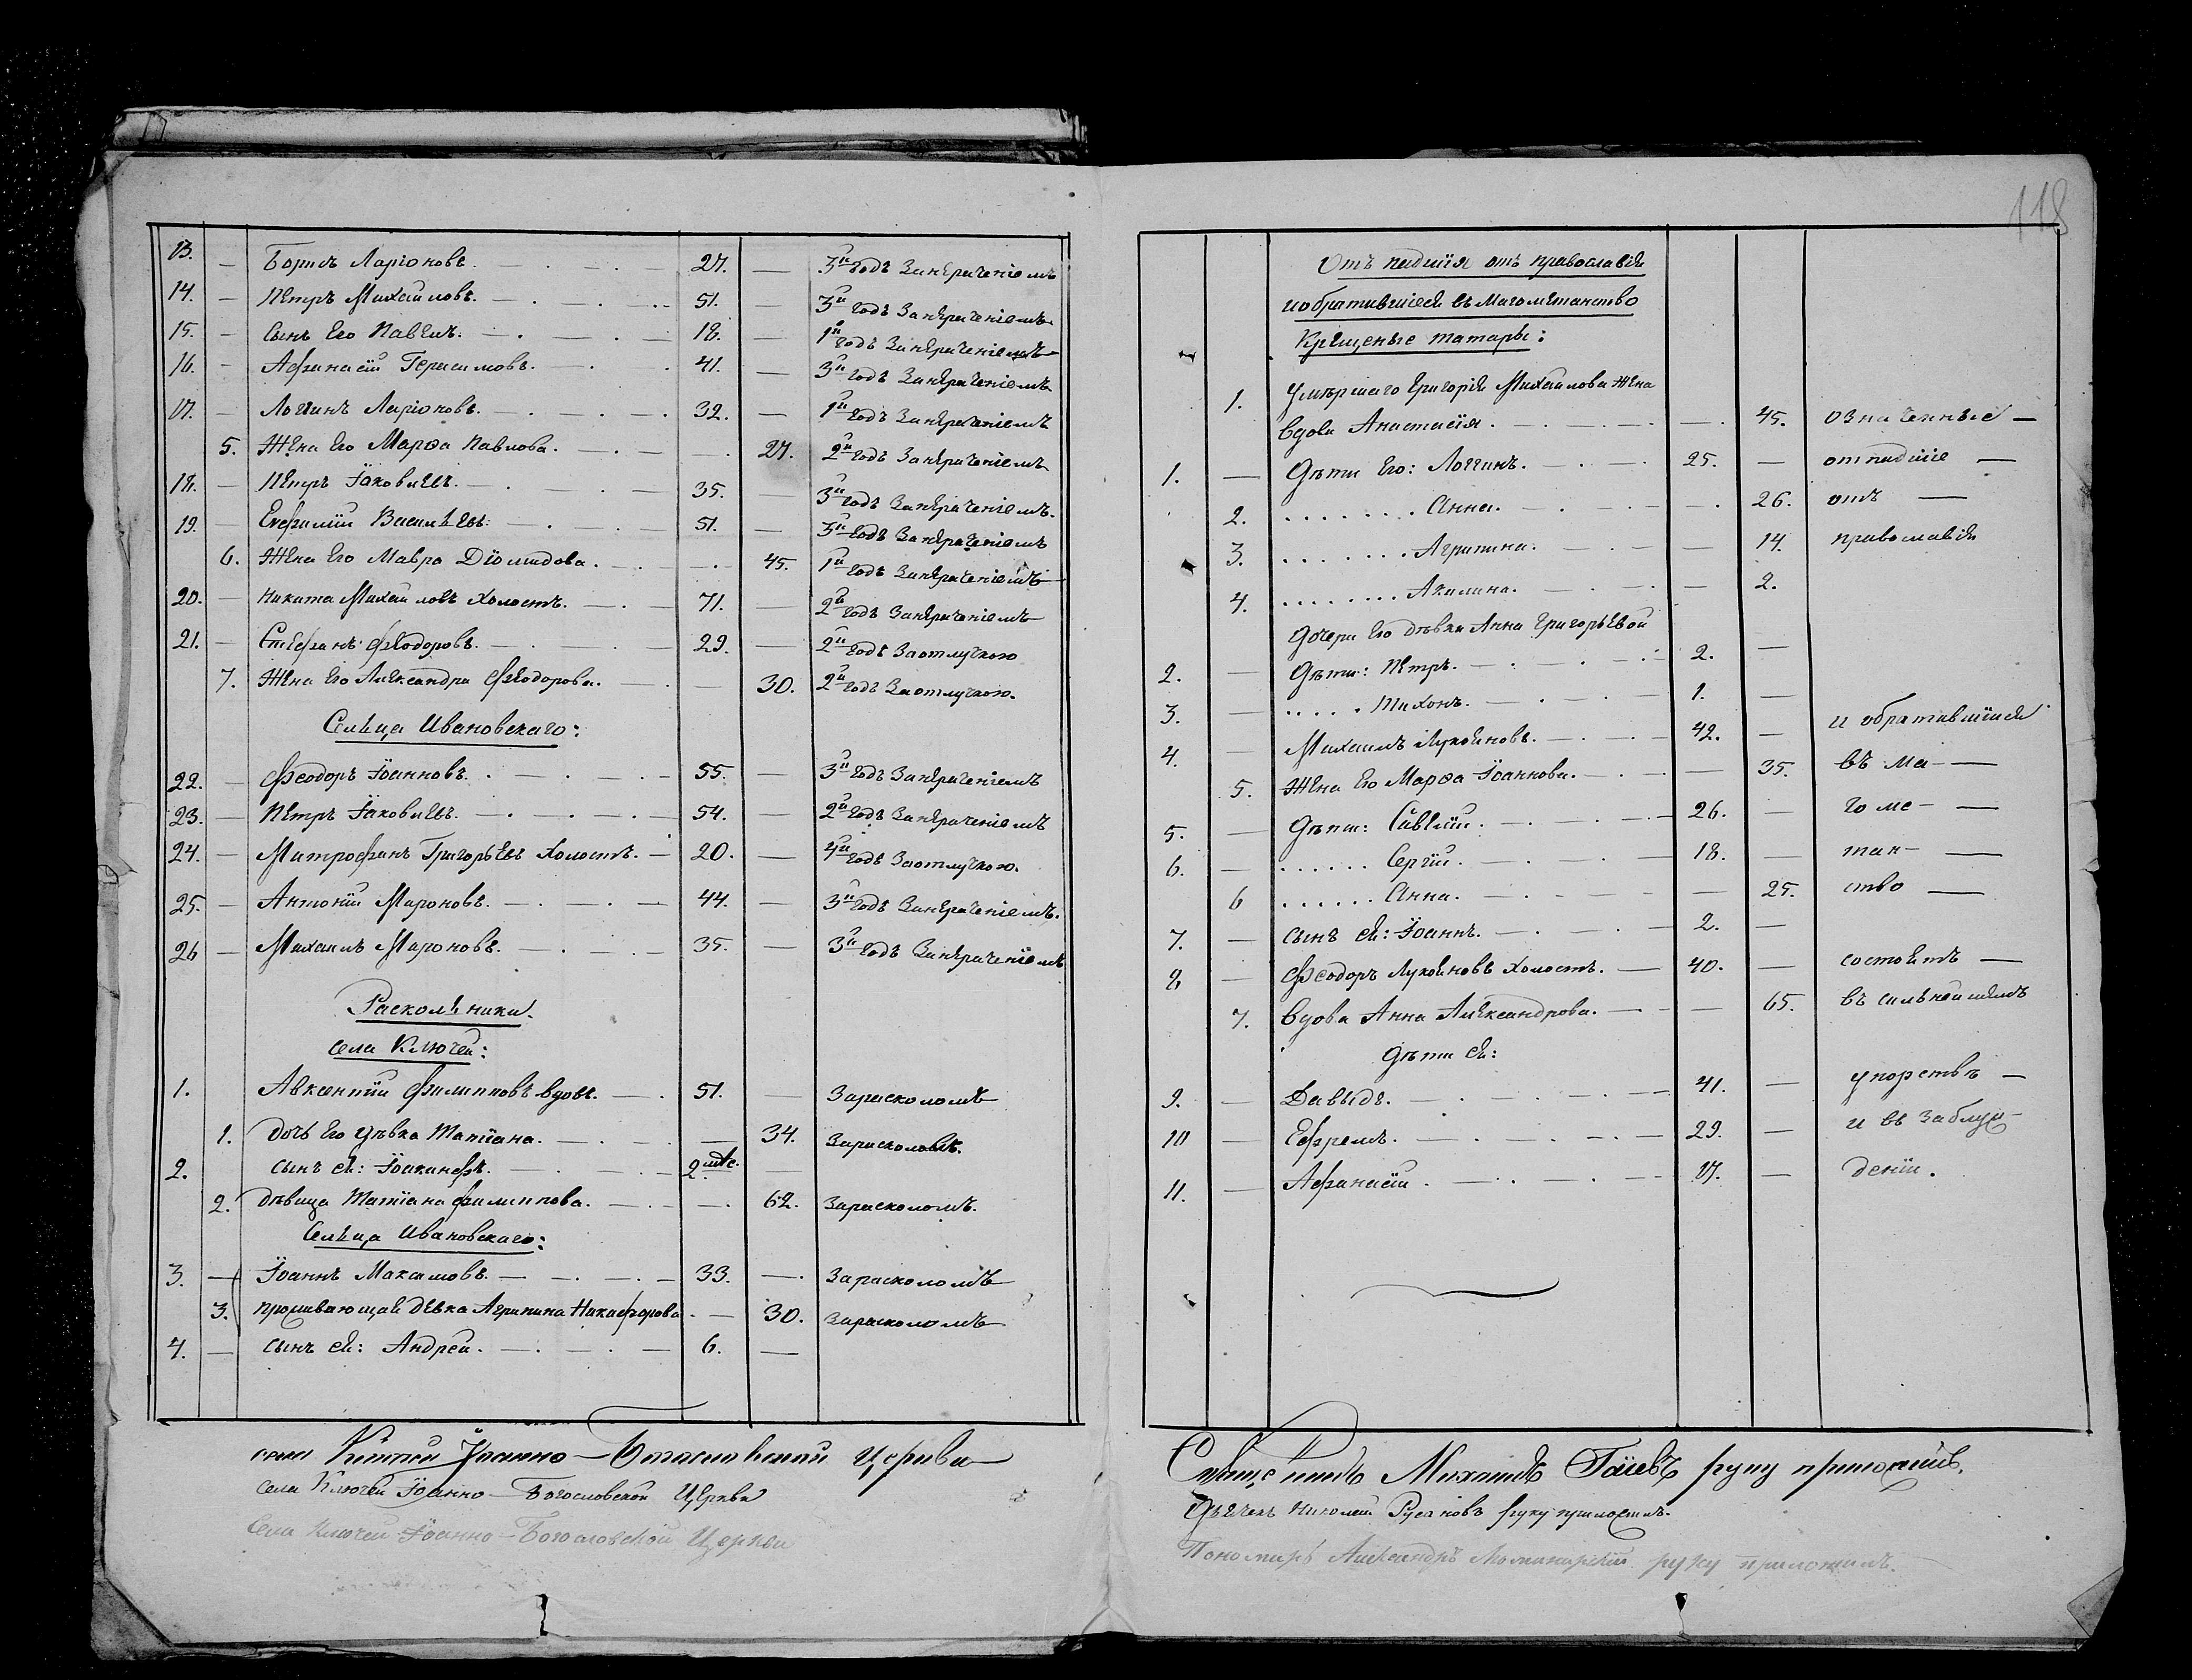 118
13. — Борисъ Ларіоновъ. 27. — 3й годъ Занерачениемъ
14. — Петръ Михайловъ. 51. — 3й годъ Занерачениемъ
15. — Сынъ Его Павелъ. 18. — 1й годъ Занерачениемъ
16. — Афанасій Герасимовъ. 41. — 3й годъ Занерачениемъ
17. — Логинъ Ларіоновъ. 32. — 1й годъ Занерачениемъ
5. Жена Его Марѳа Павлова. 27. 2й годъ Занерачениемъ
18. — Петръ Іаковлевъ. 35. — 3й годъ Занерачениемъ.
19. Евфимій Васильевъ. 51. — 3й годъ Занерачениемъ
6. Жена Его Мавра Діомидова. 45. 1й годъ Занерачениемъ
20. — Никита Михайловъ Холостъ. 71. — 2й годъ Занерачениемъ
21. — Стефанъ Феодоровъ. 29. — 2й годъ Заотлучкою
7. Жена Его Александра Феодорова. — 30. 2й годъ Заотлучкою.
Сельца Ивановскаго:
22. — Феодоръ Іоанновъ. 55. — 3й годъ Занерачениемъ
23. — Петръ Іаковлевъ. 54. — 2й годъ Занерачениемъ
24. — Митрофанъ Григорьевъ Холостъ. — 20. — 4й годъ Заотлучкою.
25. — Антоній Мироновъ. 44. — 3й годъ Занерачениемъ.
26 — Михаилъ Мироновъ. 35. — 3й годъ Занераченіемъ
Раскольники.
села Ключей:
1. Авксентій Филипповъ вдовъ. 51. — Зарасколомъ
1. Дочь Его Дѣвка Татіана. — 34. Зарасколомъ.
2. Сынъ Ея: Іоакинфъ. 2 мѣс. —
2. Дѣвица Татіана Филиппова. 62. Зарасколомъ.
Сельца Ивановскаго:
3. — Іоаннъ Максимовъ. 33. — Зарасколомъ
3. проживающая девка Агрипина Никифорова. — 30. Зарасколомъ
4. — Сынъ Ея: Андрей. 6. —
села Ключей Іоанно-Богословской Церкви
села Ключей Іоанно-Богословской Церкви
Села Ключей Іоанно-Богословской Церкви
Отъ падшія отъ православія
и обратившіеся въ магометанство
Крещеные татары:
1. Умершаго Григорія Михайлова Жена
вдова Анастасія. 45. означенные —
1. — Дѣти Его: Логгинъ. 25. — отпадшіе —
2. Анна. 26. отъ —
3. Агрипина. — 14. православія
4. Акилина. — 2.
Дочери Его дѣвки Анны Григорьевой
2. — Дѣти: Петръ. 2. —
3. — Тихонъ. 1. —
4. — Михаилъ Лукояновъ. 42. — и обратившіися
5. Жена Его Марѳа Іоаннова. — 35. въ ма- —
5. — Дѣти: Савелій. 26. — го ме- —
6. — Сергій. 18. — тан- —
6 Анна. — 25. ство —
7. — Сынъ Ея: Іоаннъ. 2. —
8 — Феодоръ Лукояновъ Холостъ. — 40. — состоятъ —
7. Вдова Анна Александрова. — 65. въ сильнейшемъ
Дѣти Ея:
9. — Давыдъ. 41. — упорствѣ —
10 — Ефремъ. 29. — и въ заблуж-
11. — Афанасій. 17. — деніи.
Священникъ Михаилъ руку приложилъ.
Дьячекъ Николай Русановъ руку приложилъ.
Пономарь Александръ руку приложилъ.